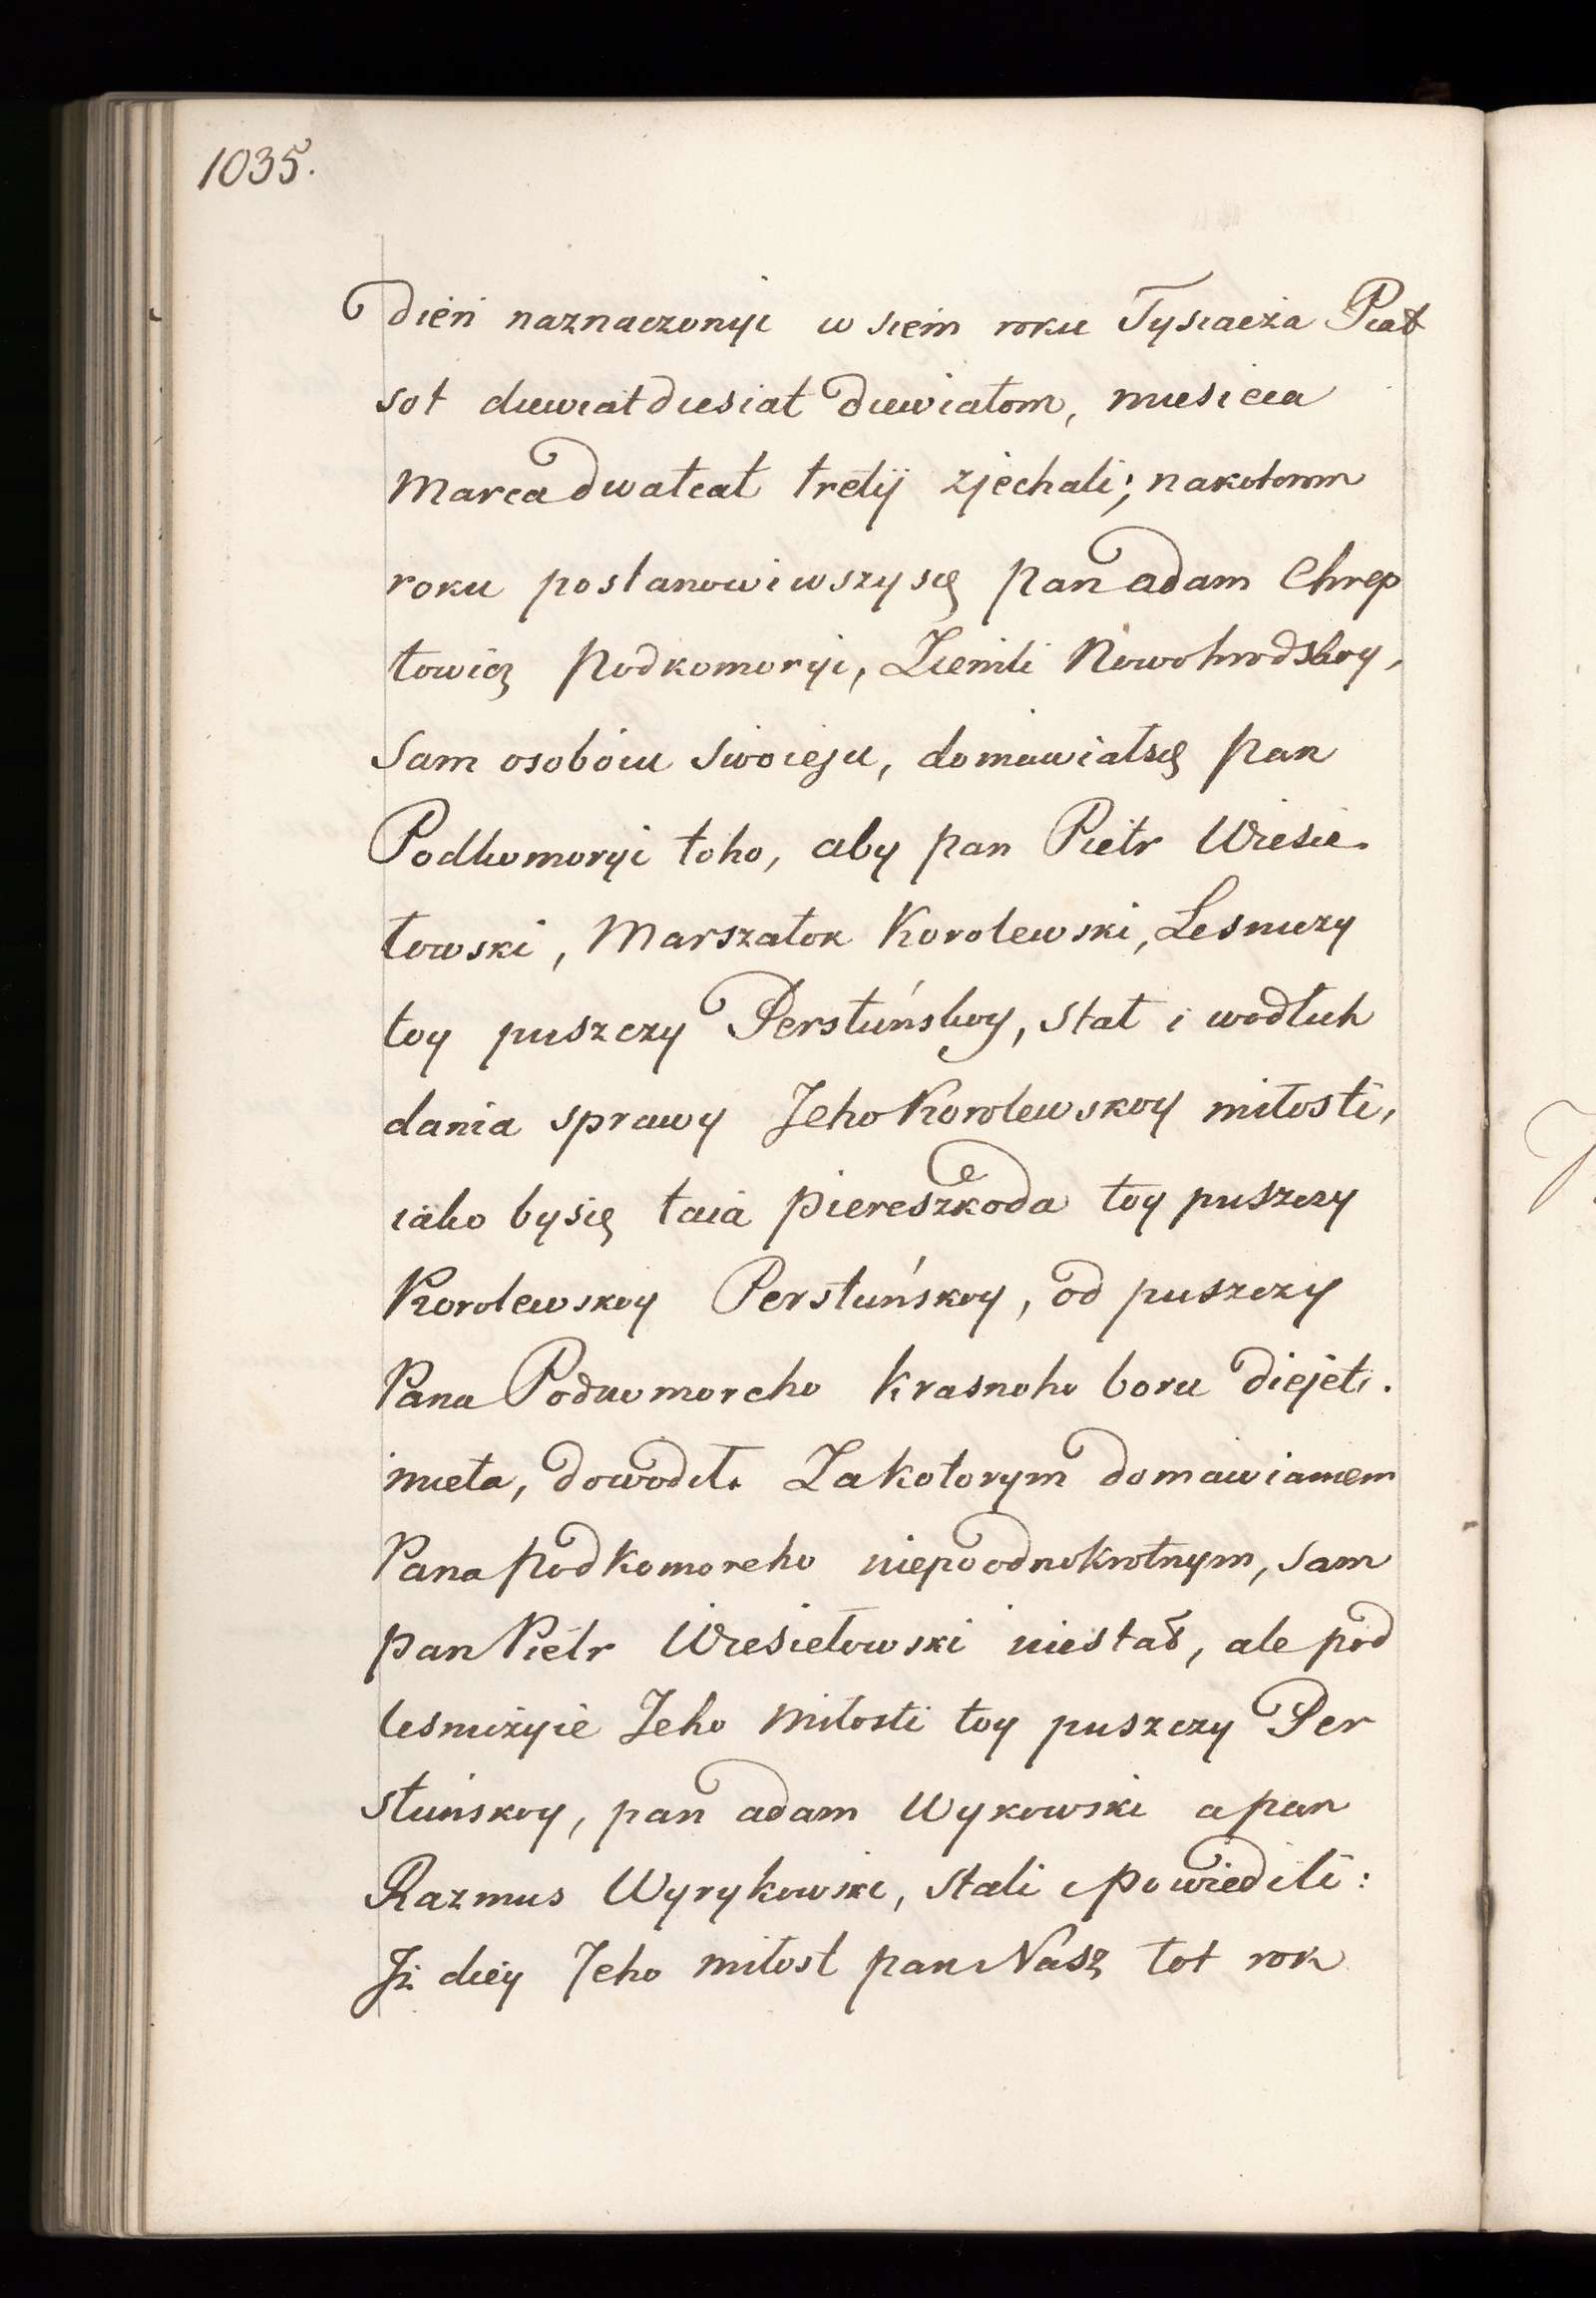 1035.
dień naznaczonyi w siem roku Tysiacza Piat
sot diewiatdiesiat diewiatom, miesieca
Marca dwatcat tretij zjechali; nakotorom
roku postanowiwszysię pan adam Chrep
towicz Podkomoryi, Ziemli Nowohrodskoy,
Sam osoboiu swoieju, domawiałsię pan
Podkomoryi toho, aby pan Pietr Wiesie.
łowski, Marszałok Korolewski, Lesniczy
toy puszczy Perstuńskoy, stał i wodłuh
dania sprawy Jeho Korolewskoy miłosti,
iako bysię taia piereszkoda toy puszczy
Korolewskoy Perstuńskoy, od puszczy
Pana Podkomoreho Krasnoho boru diejeti.
mieła, dowodił. Zakotorym domawianiem
Pana podkomoreho niepoodnokrotnym, sam
pan Pietr Wiesiełowski niestał, ale pod
lesniczyie Jeho Miłosti toy puszczy Per
stuńskoy, pan adam Wykowski a pan
Razmus Wyrykowski, stali i powiedili:
Iż diey Jeho miłost pan Nasz tot rok